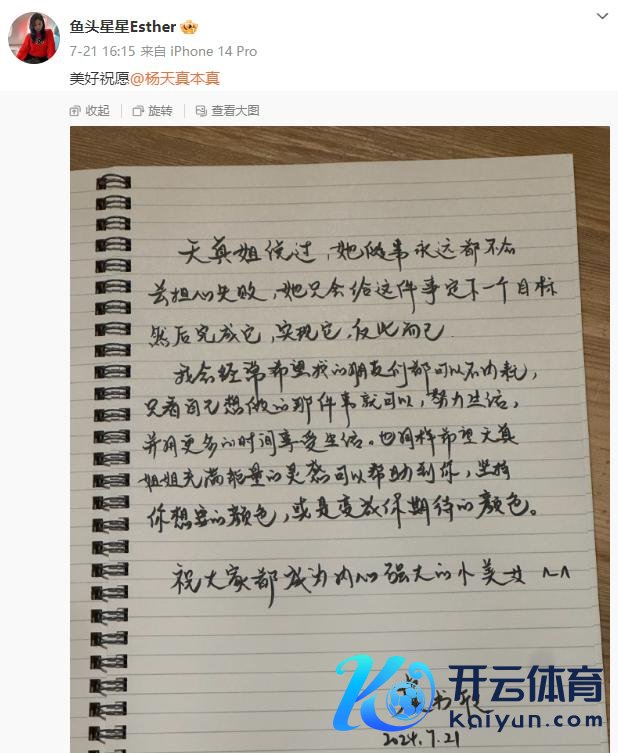 鱼头星星Esther
7-21 16:15 来自 iPhone 14 Pro
美好祝愿@杨天真本真
收起 旋转 查看大图
天真姐说过，她做事永远都不会
去担心失败，她只会给这件事定下一个目标
然后完成它，实现它，仅此而已.
我会经常希望我的朋友们都可以不内耗，
只看自己想做的那件事就可以，努力生活，
并用更多的时间享受生活。也同样希望天真
姐姐充满能量的灵感可以帮助到你，坚持
你想要的颜色，或是变成你期待的颜色。
祝大家都成为内心强大的小美女 ^^
书欣
2024.7.21
开云体育
kaiyun.com